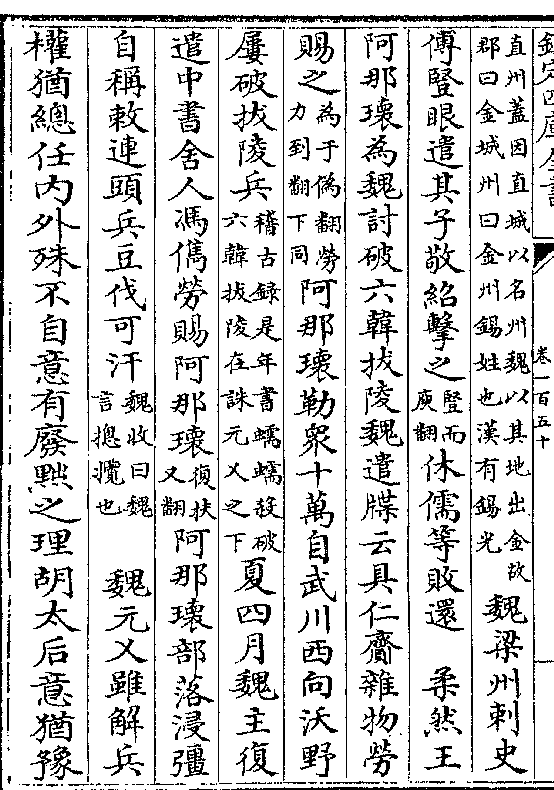 欽定四庫全書 卷一百五十
直州蓋因直城以名州魏以其地出金故
郡曰金城州曰金州錫姓也漢有錫光
魏梁州刺史
傅竪眼遣其子敬紹擊之
竪而
庾翻
休儒等敗還 柔然王
阿那瓌為魏討破六韓拔陵魏遣牒云具仁齎雜物勞
賜之
為于偽翻勞
力到翻下同
阿那瓌勒衆十萬自武川西向沃野
屢破拔陵兵
稽古錄是年書蠕蠕殺破
六韓拔陵在誅元乂之下
夏四月魏主復
遣中書舍人馮儁勞賜阿那瓌
復扶
又翻
阿那瓌部落浸彊
自稱敕連頭兵豆伐可汗
魏收曰魏
言揔攬也
魏元乂雖解兵
權猶總任内外殊不自意有廢黜之理胡太后意猶豫